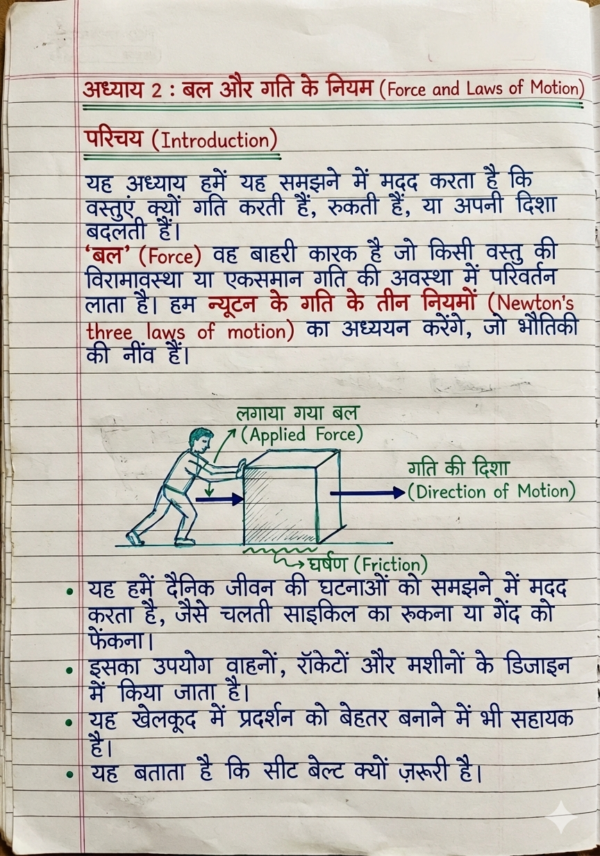 अध्याय 2 : बल और गति के नियम (Force and Laws of Motion)
परिचय (Introduction)
यह अध्याय हमें यह समझने में मदद करता है कि
वस्तुएं क्यों गति करती हैं, रुकती हैं, या अपनी दिशा
बदलती हैं।
'बल' (Force) वह बाहरी कारक है जो किसी वस्तु की
विरामावस्था या एकसमान गति की अवस्था में परिवर्तन
लाता है। हम न्यूटन के गति के तीन नियमों (Newton's
three laws of motion) का अध्ययन करेंगे, जो भौतिकी
की नींव हैं।
लगाया गया बल
(Applied Force)
गति की दिशा
(Direction of Motion)
घर्षण (Friction)
• यह हमें दैनिक जीवन की घटनाओं को समझने में मदद
करता है, जैसे चलती साइकिल का रुकना या गेंद को
फेंकना।
• इसका उपयोग वाहनों, रॉकेटों और मशीनों के डिजाइन
में किया जाता है।
• यह खेलकूद में प्रदर्शन को बेहतर बनाने में भी सहायक
है।
• यह बताता है कि सीट बेल्ट क्यों ज़रूरी है।